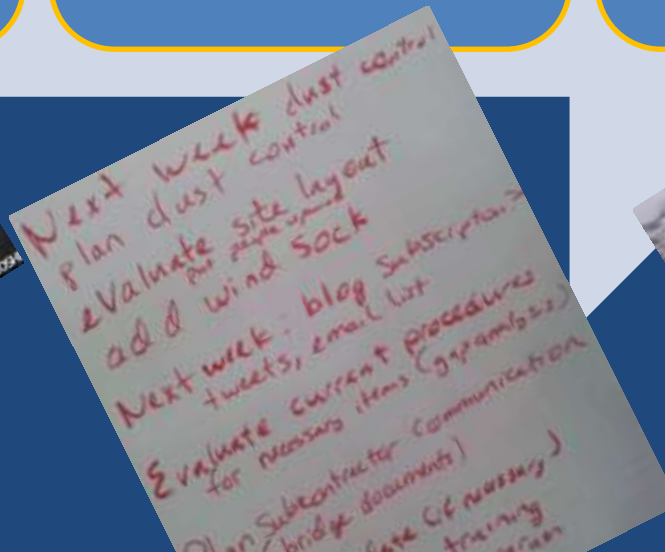 Next week dust control
plan dust control
evaluate site layout
put people upwind
add wind sock
Next week. blog Subscription?
tweets, email list
Evaluate current procedures
for necessary items (gap analysis)
Plan Subcontractor Communication
(bridge documents)
(if necessary)
training